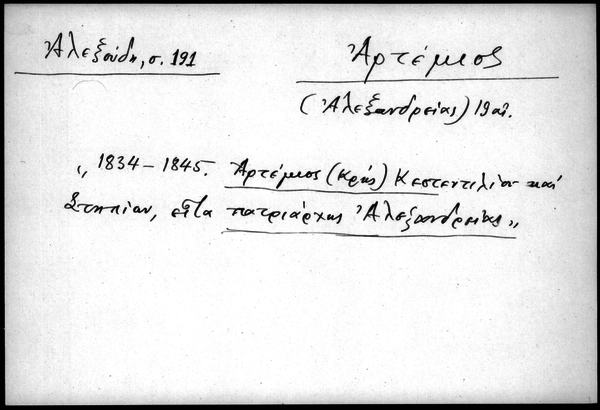 Ἀλεξούδη, σ. 191
Ἀρτέμιος
(Ἀλεξανδρείας) 19 αἰ.
„ 1834 – 1845. Ἀρτέμιος (Κρής) Κεστεντιλίου καί
Στηπίων, εἶτα πατριάρχης Ἀλεξανδρείας„